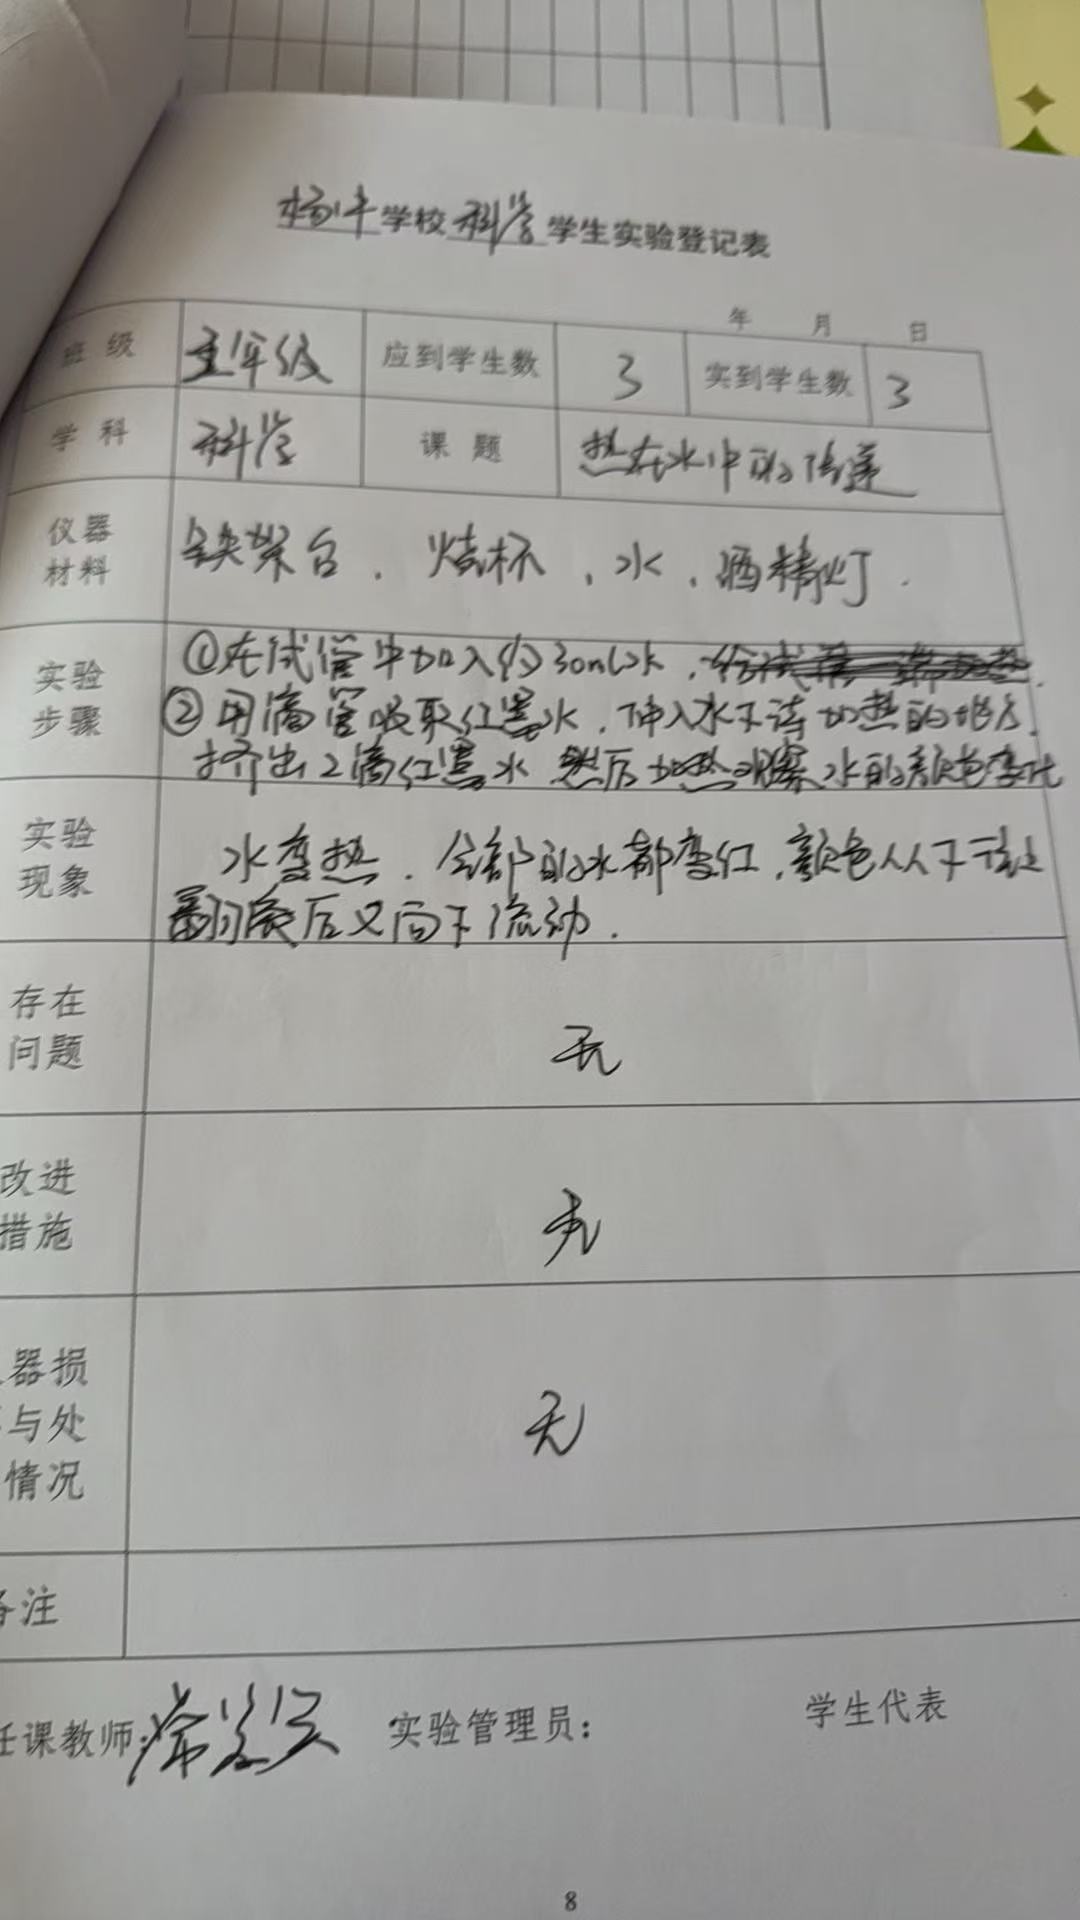 杨牛学校科学学生实验登记表
年 月 日
班级 五年级 应到学生数 3 实到学生数 3
学科 科学 课题 热在水中的传递
仪器
材料
铁架台、烧杯、水、酒精灯.
实验
步骤
①在试管中加入约30ml水,
②用滴管吸取红墨水,伸入水下请加热的地方,
挤出2滴红墨水 然后加热观察水的颜色变化
实验
现象
水变热.全部的水都变红,颜色从下往上
翻滚后又向下流动.
存在
问题
无
改进
措施
无
器损
与处
情况
无
备注
任课教师: 实验管理员: 学生代表
8